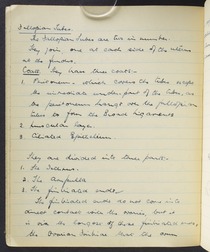 Fallopian Tubes.
The Fallopian Tubes are two in number.
They join one at each side of the uterus
at the fundus.
Coats. They have three coats:-
1. Peritoneum which covers the tubes except
the immediate under part of the tubes, as
the peritoneum hangs over the fallopian
tubes to form the broad ligaments.
2. Muscular layer.
3. Ciliated Epithelium.
They are divided into three parts:-
1. The Isthmus.
2. The Ampulla
3. The fimbriated ends.
The fimbriated ends do not come into
direct contact with the ovaries, but it
is via the longest of these fimbriated ends,
the Ovarian Fimbriae that the ovum